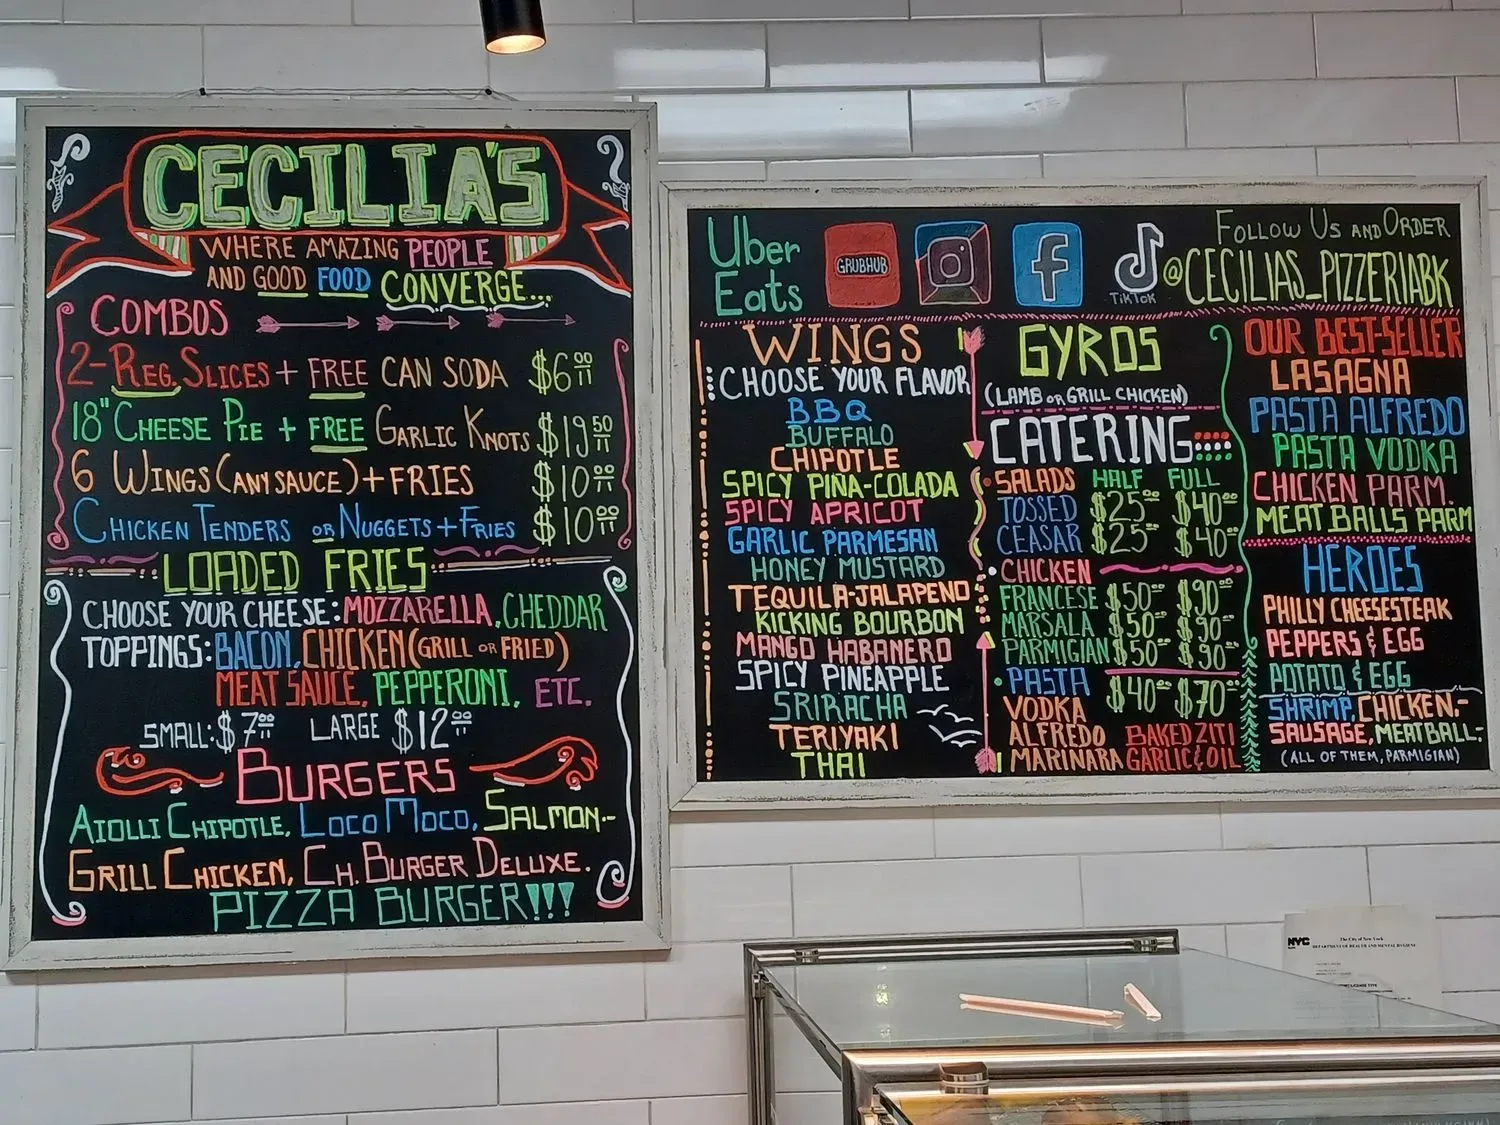 CECILIA'S
WHERE AMAZING PEOPLE
AND GOOD FOOD CONVERGE...
COMBOS
2-REG. SLICES + FREE CAN SODA $6.00
18" CHEESE PIE + FREE GARLIC KNOTS $19.50
6 WINGS (ANY SAUCE) + FRIES $10.00
CHICKEN TENDERS OR NUGGETS + FRIES $10.00
LOADED FRIES
CHOOSE YOUR CHEESE: MOZZARELLA, CHEDDAR
TOPPINGS: BACON, CHICKEN (GRILL OR FRIED)
MEAT SAUCE, PEPPERONI, ETC.
SMALL: $7.00 LARGE $12.00
BURGERS
AIOLLI CHIPOTLE, LOCO MOCO, SALMON--
GRILL CHICKEN, CH. BURGER DELUXE.
PIZZA BURGER!!!
Uber
Eats
GRUBHUB
f
TikTok
FOLLOW US AND ORDER
@CECILIAS_PIZZERIABK
WINGS
:CHOOSE YOUR FLAVOR
BBQ
BUFFALO
CHIPOTLE
SPICY PIÑA-COLADA
SPICY APRICOT
GARLIC PARMESAN
HONEY MUSTARD
TEQUILA-JALAPEÑO
KICKING BOURBON
MANGO HABANERO
SPICY PINEAPPLE
SRIRACHA
TERIYAKI
THAI
GYROS
(LAMB OR GRILL CHICKEN)
CATERING
SALADS HALF FULL
TOSSED $25.00 $40.00
CEASAR $25.00 $40.00
CHICKEN
FRANCESE $50.00 $90.00
MARSALA $50.00 $90.00
PARMIGIAN $50.00 $90.00
PASTA $40.00 $70.00
VODKA
ALFREDO BAKED ZITI
MARINARA GARLIC & OIL
OUR BEST-SELLER
LASAGNA
PASTA ALFREDO
PASTA VODKA
CHICKEN PARM.
MEAT BALLS PARM
HEROES
PHILLY CHEESESTEAK
PEPPERS & EGG
POTATO & EGG
SHRIMP, CHICKEN,-
SAUSAGE, MEATBALL-
(ALL OF THEM, PARMIGIAN)
NYC
The City of New York
DEPARTMENT OF HEALTH AND MENTAL HYGIENE